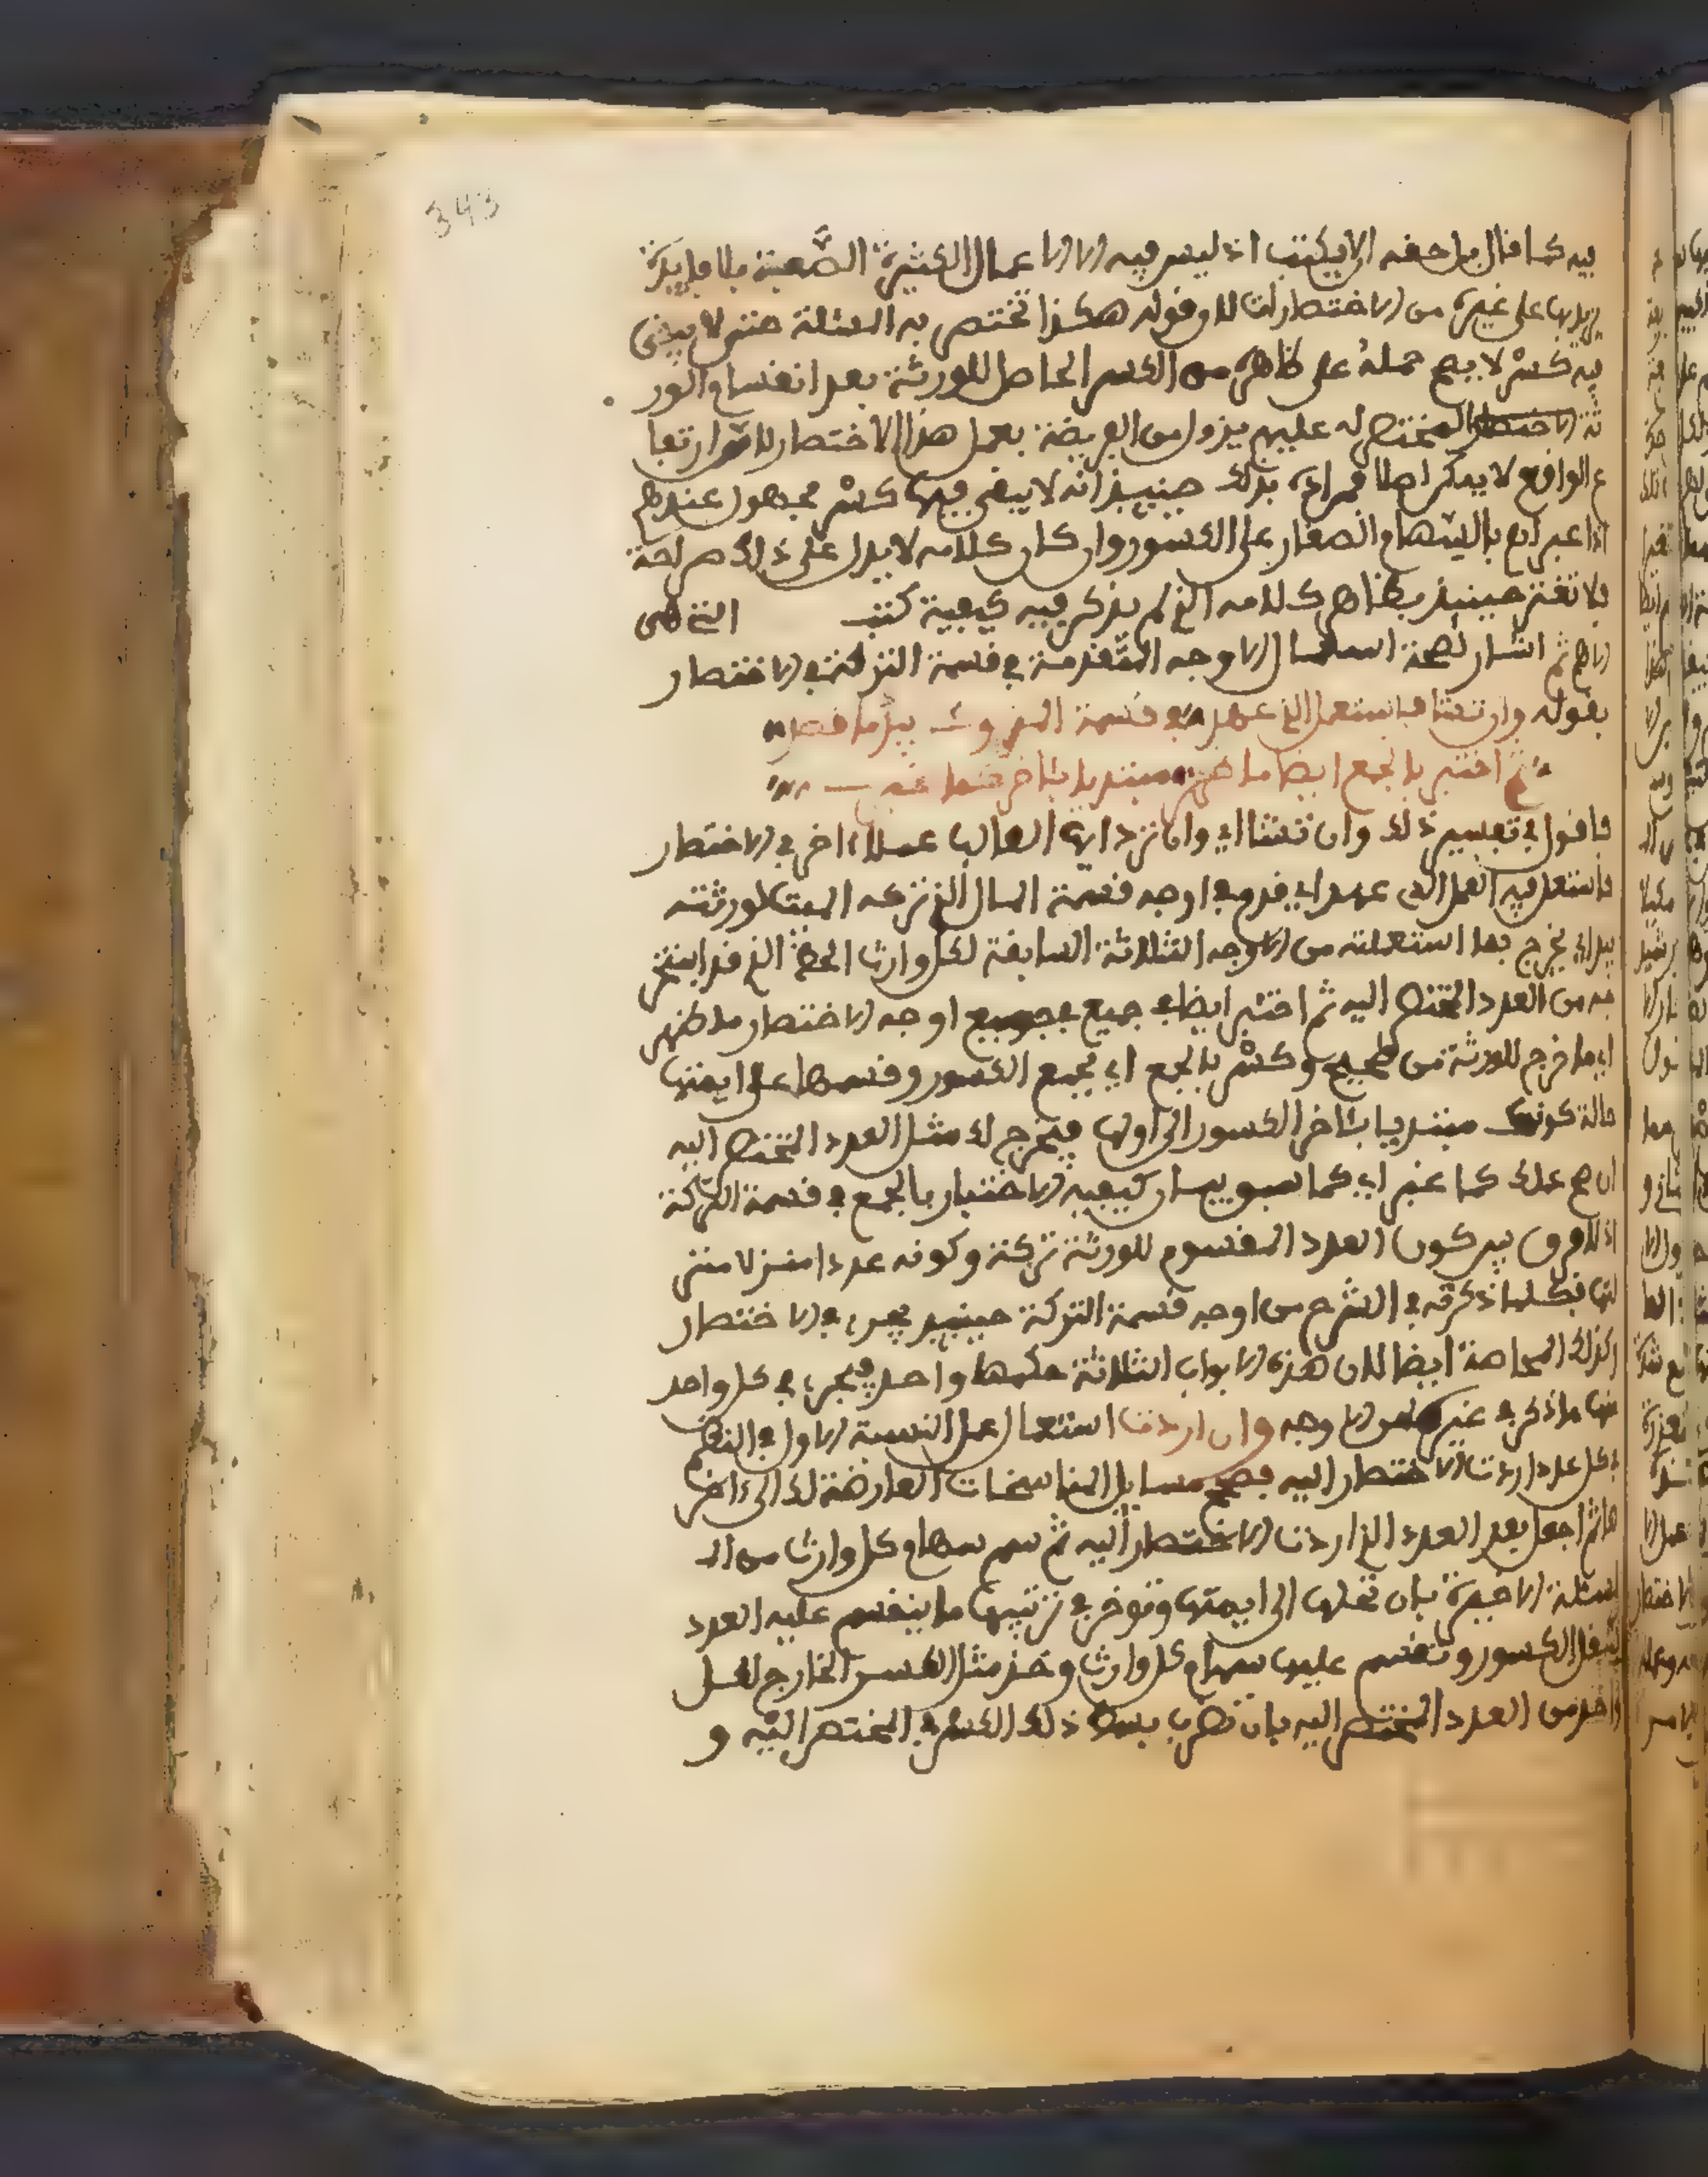 343
فيه كما قال بل حقه الا يكتب اذ ليس فيه الا الاعمال الكثيرة الصعبة بلا فايدة
يزيد بها على غيره من الاختصارات للا وقوله هكذا تختصر به المسئلة حتى لا يبقى
فيه كسر لا يصح حمله على ظاهره من الكسر الحاصل للورثة بعد انقسام الور
ثة المختصر له عليهم يزول من الفريضة بعمل هذا الاختصار لان ارتفا
ع الواقع لا يمكن اصلا فمراده بذلك حينيذ انه لا يبقى فيها كسر مجهول عندهم
اذا عبر لهم بالسهام الصغار على الكسور وان كان كلامه لا يدل على ذلك صراحة
فلا تغتر حينيذ بظاهر كلامه الذي لم يذكر فيه كيفية كتب
الاهم ثم اشار لصحة استعمال الاوجه المتقدمة في قسمة التركة في الاختصار
بقوله وان تشا فاستعمل الذي عهد في قسمة المـوروث يبد ما قصد
ثم اختبر بالجمع ايضا ما ظهر مبتديا بئاخر كما غبر
فاقول في تفسير ذلك وان تشا اي وان ترد ايها الطالب عملا ءاخر في الاختصار
فاستعمل فيه العمل الذي عهد اي قدم في اوجه قسمة المال الذي تركه الميت لورثته
يبد اي يخرج بما استعملته من الاوجه الثلاثة السابقة لكل وارث الحظ الذي قد
جه من العدد المختصر اليه ثم اختبر ايضا في جميع اوجه الاختصار ما ظهر
اي ما خرج للورثة من صحيح وكسر بالجمع اي بجمع الكسور وقسمها على ايمتها
حالة كونك مبتديا بئاخر الكسور الى اولها فيخرج لك مثل العدد المختصر اليه
ان صح عملك كما غبر اي كما سبق بيان كيفية الاختبار بالجمع في قسمة التركة
اذ لا فرق بين كون العدد المقسوم للورثة تركة وكونه عددا منزلا منز
لتها فكلما ذكرته في الشرح من اوجه قسمة التركة حينيذ يجري في الاختصار
وكذلك المحاصة ايضا لان هذه الابواب الثلاثة حكمها واحد فيجري في كل واحد
منها ما ذكر في غيره من الاوجه وان اردت استعمال عمل النسبة الاول في النظم
في كل عدد اردت الاختصار اليه فصحح مسايل المناسخات العارضة لك الى ءاخر
ها ثم اجعل بعد العدد الذي اردت الاختصار اليه ثم سم سهام كل وارث من الـ
مسئلة الاخيرة بان تحلها الى ايمتها وتوخر في ترتيبها ما ينقسم عليه العدد
لتقل الكسور وتقسم عليها سهام كل وارث وخذ مثل الكسر الخارج لكل
واحد من العدد المختصر اليه بان تضرب بسط ذلك الكسر في المختصر اليه و